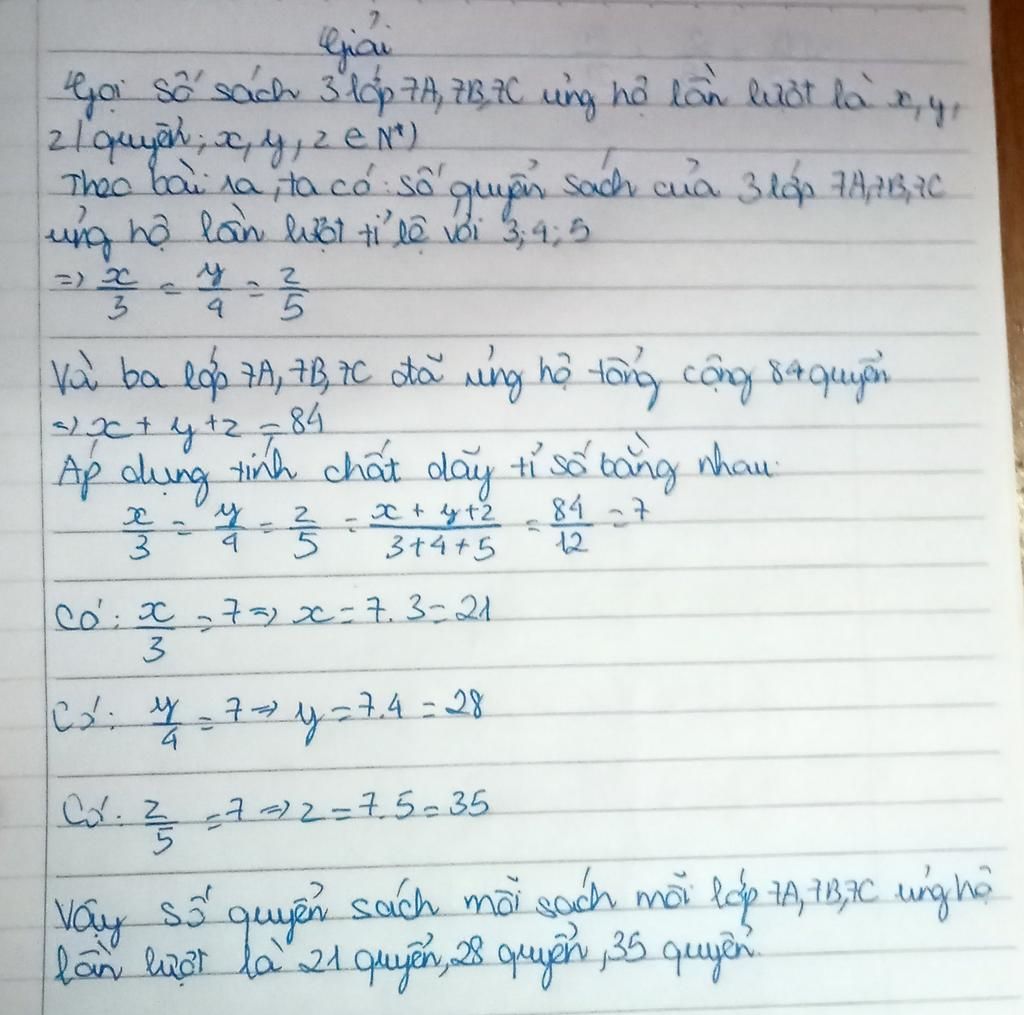 Giải
Gọi số sách 3 lớp 7A, 7B, 7C ủng hộ lần lượt là x, y,
z (quyển; x, y, z ∈ N*)
Theo bài ra, ta có: số quyển sách của 3 lớp 7A, 7B, 7C
ủng hộ lần lượt tỉ lệ với 3; 4; 5
=> x/3 = y/4 = z/5
Và ba lớp 7A, 7B, 7C đã ủng hộ tổng cộng 84 quyển
=> x + y + z = 84
Áp dụng tính chất dãy tỉ số bằng nhau:
x/3 = y/4 = z/5 = (x + y + z)/(3 + 4 + 5) = 84/12 = 7
Có: x/3 = 7 => x = 7.3 = 21
Có: y/4 = 7 => y = 7.4 = 28
Có: z/5 = 7 => z = 7.5 = 35
Vậy số quyển sách mỗi sách mỗi lớp 7A, 7B, 7C ủng hộ
lần lượt là 21 quyển, 28 quyển, 35 quyển.